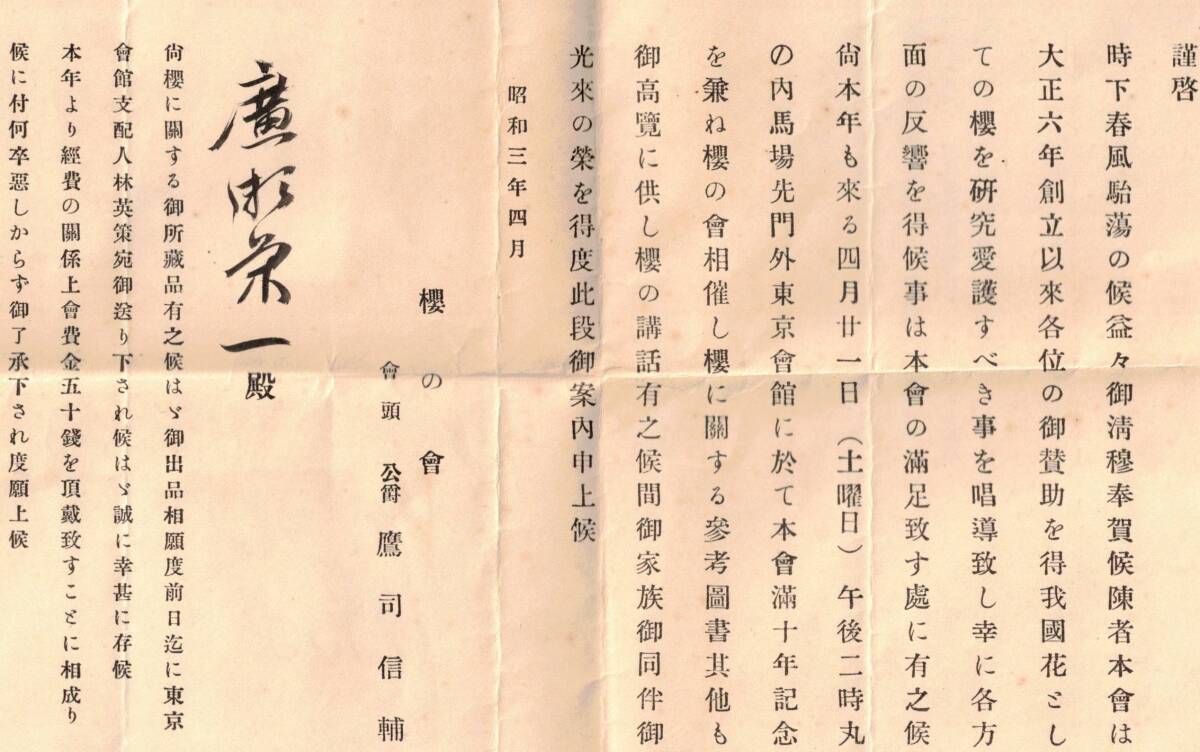 謹啓
時下春風駘蕩の候益々御淸穆奉賀候陳者本會は
大正六年創立以來各位の御賛助を得我國花とし
ての櫻を硏究愛護すべき事を唱導致し幸に各方
面の反響を得候事は本會の滿足致す處に有之候
尙本年も來る四月廿一日(土曜日)午後二時丸
の內馬場先門外東京會館に於て本會滿十年記念
を兼ね櫻の會相催し櫻に關する參考圖書其他も
御高覽に供し櫻の講話有之候間御家族御同伴御
光來の榮を得度此段御案內申上候
昭和三年四月
櫻の會
會頭 公爵 鷹司信輔
廣 一殿
尙櫻に關する御所藏品有之候はゞ御出品相願度前日迄に東京
會館支配人林英策宛御送り下され候はゞ誠に幸甚に存候
本年より經費の關係上會費金五十錢を頂戴致すことに相成り
候に付何卒惡しからず御了承下され度願上候